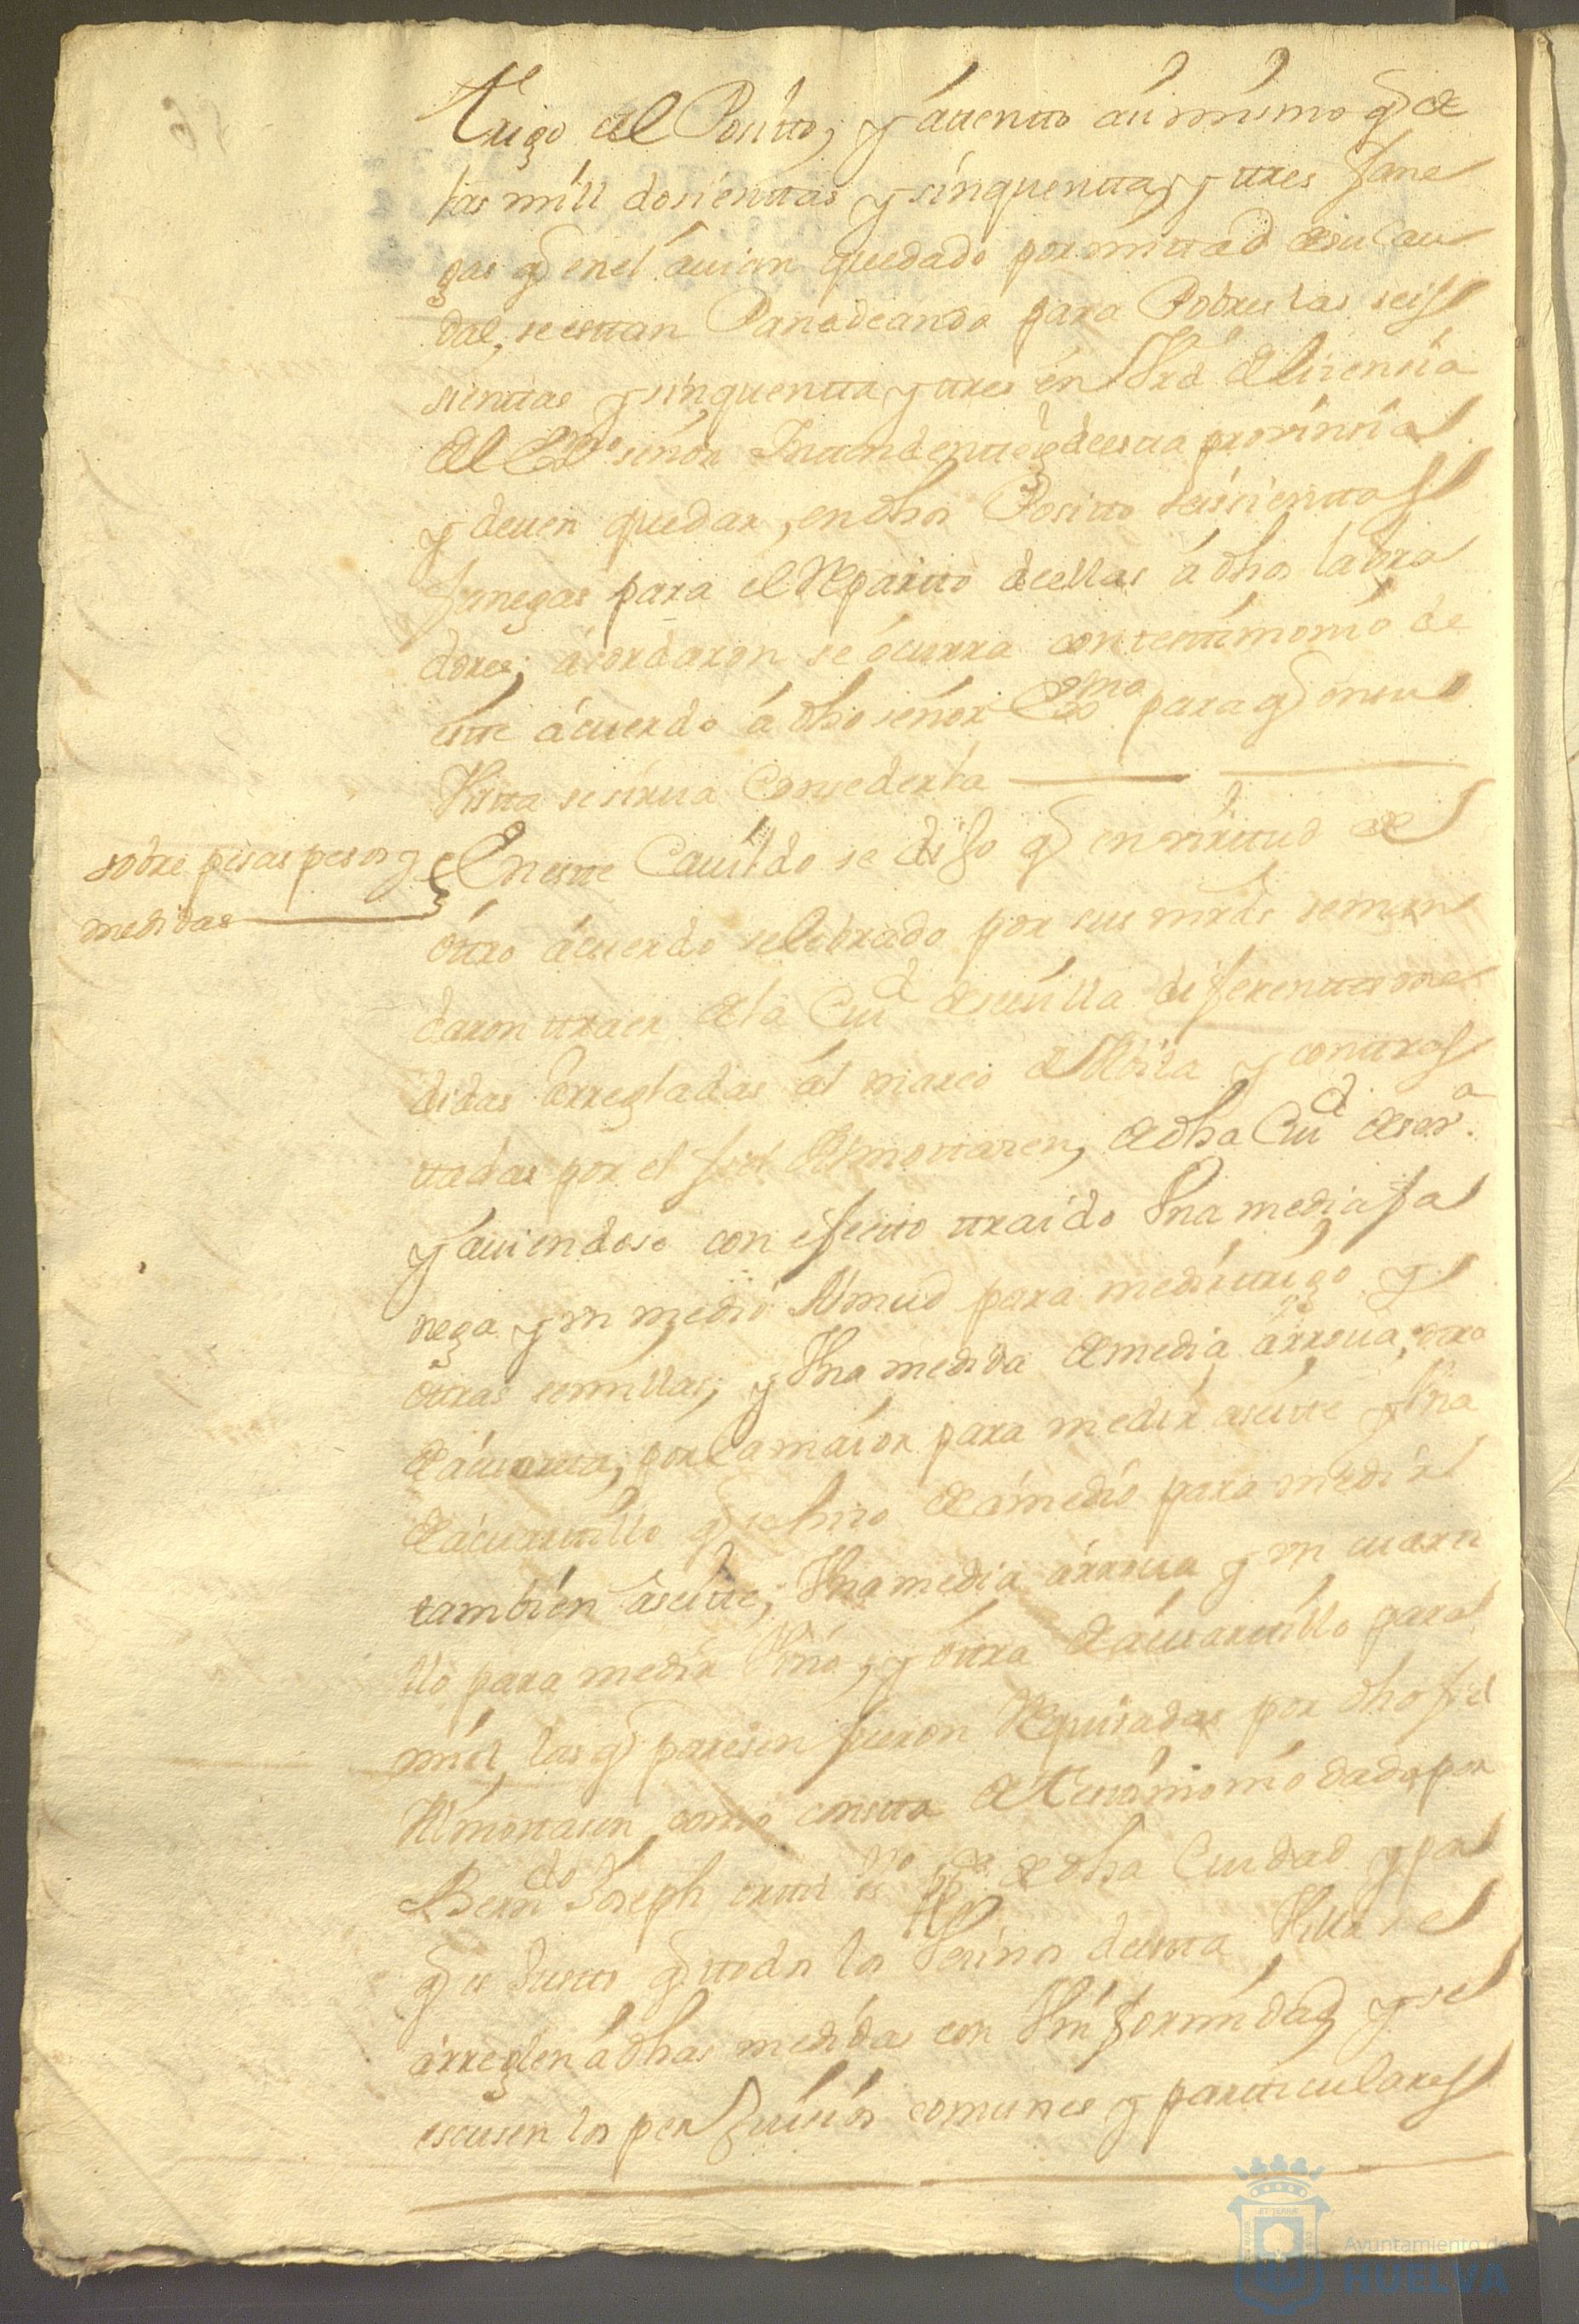 trigo del Positto; y attentto asimismo q de
las mill dosientas y sinquentta y ttres fane
gas q en el avian quedado por mittad de su cau
dal, se esttan Panadeando para Pobres las seis
sienttas y sinquentta y ttres en Vrd de lisensia
del Exmo señor Inttendentte de estta provinsia
y deven quedar, en dho Positto seiscienttas
fanegas para el Repartto de ellas á dhos labra
dores; ácordaron se ócurra con testtimonio de
estte ácuerdo á dho señor Exmo para q en su
Vistta se sirva Consederla
sobre pesas pesos y
medidas
En estte Cavildo se dijo q en virttud de
ottro ácuerdo selebrado por sus mrds se man
daron ttraer de la Ciud de sevilla diferenttes me
didas arregladas ál marco de Abila y conttras
ttadas por el fiel Almottasen, de dha Ciud de seva
y aviendose con efectto ttraido Vna media fa
nega y un medio Almud para medir ttrigo y
ottras semillas; y Vna medida de media árrova, ottra
de áquartta, por la maior para medir aseitte y Vna
de áquarttillo q se hiso de ámedio para medir
tambien áseitte; Vna media árrova y un cuartti
llo para medir Vino, y óttra de áquarttillo para
miel, las q paresen fueron Requisadas por dho fiel
Almottasen como constta de Testtimonio dado por
Berndo Joseph orttis esno ppco de dha Ciudad y pa
q es Justto q ttodos los Vesinos de estta Villa se
árreglen á dhas medidas con Vniformidad y se
escusen los perjuisios comunes y partticulares
Ayuntamiento de
HUELVA